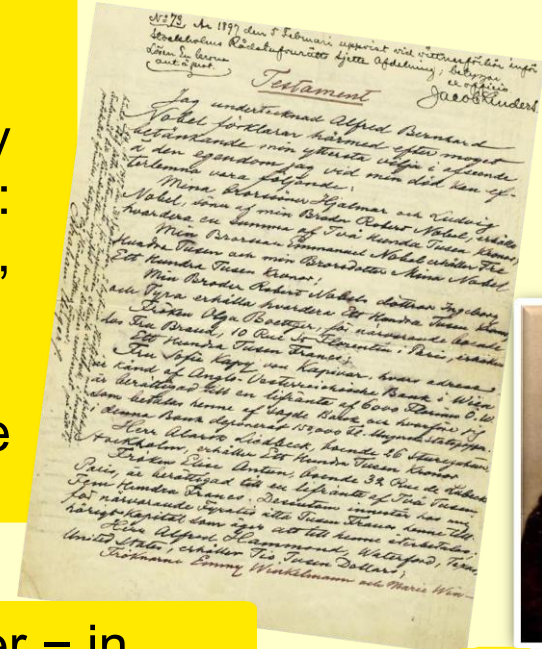 y
:
,
e
er – in
No 73. År 1897 den 5 Februari uppvist vid vittnesförhör inför
Stockholms Rådstufvurätts Sjette Afdelning; betygar
ex officio
Jacob Lindert.
Lösen En krona
Testament
Jag undertecknad Alfred Bernhard
Nobel förklarar härmed efter moget
betänkande min yttersta vilja i afseende
å den egendom jag vid min död kan ef-
terlemna vara följande:
Mina Brorsöner Hjalmar och Ludvig
Nobel, söner af min Broder Robert Nobel, erhålla
hvardera en summa af Två Hundra Tusen Kronor;
Min Brorson Emmanuel Nobel erhåller Tre
Hundra Tusen och min Brorsdotter Mina Nobel
Ett Hundra Tusen Kronor;
Min Broder Robert Nobels döttrar Ingeborg
och Tyra erhålla hvardera Ett Hundra Tusen Kronor
Fröken Olga Boettger, för närvarande boende
hos Fru Brand, 10 Rue St Florentin i Paris, erhåller
Ett Hundra Tusen Francs;
Fru Sofie Kapy von Kapivar, hvars adress
är känd af Anglo-Oesterreichische Bank i Wien
är berättigad till en lifränta af 6000 Florins Ö.W.
som betalas henne af sagde Bank och hvarföre jag
i denna Bank deponerat 150,000 Fl. i Ungerska statspapper
Herr Alarik Liedbeck, boende 26 Sturegatan
Stockholm, erhåller Ett Hundra Tusen Kronor
Fröken Elise Antun, boende 32 Rue de Lubeck
Paris, är berättigad till en lifränta af Två Tusen
Fem Hundra Francs. Dessutom innestår hos mig
för närvarande Fyratio åtta Tusen Francs henne till-
hörigt kapital som äger att till henne återbetalas;
Herr Alfred Hammond, Waterford, Texas
United States, erhåller Tio Tusen Dollars;
Fröknarna Emmy Winkelmann och Marie Win-